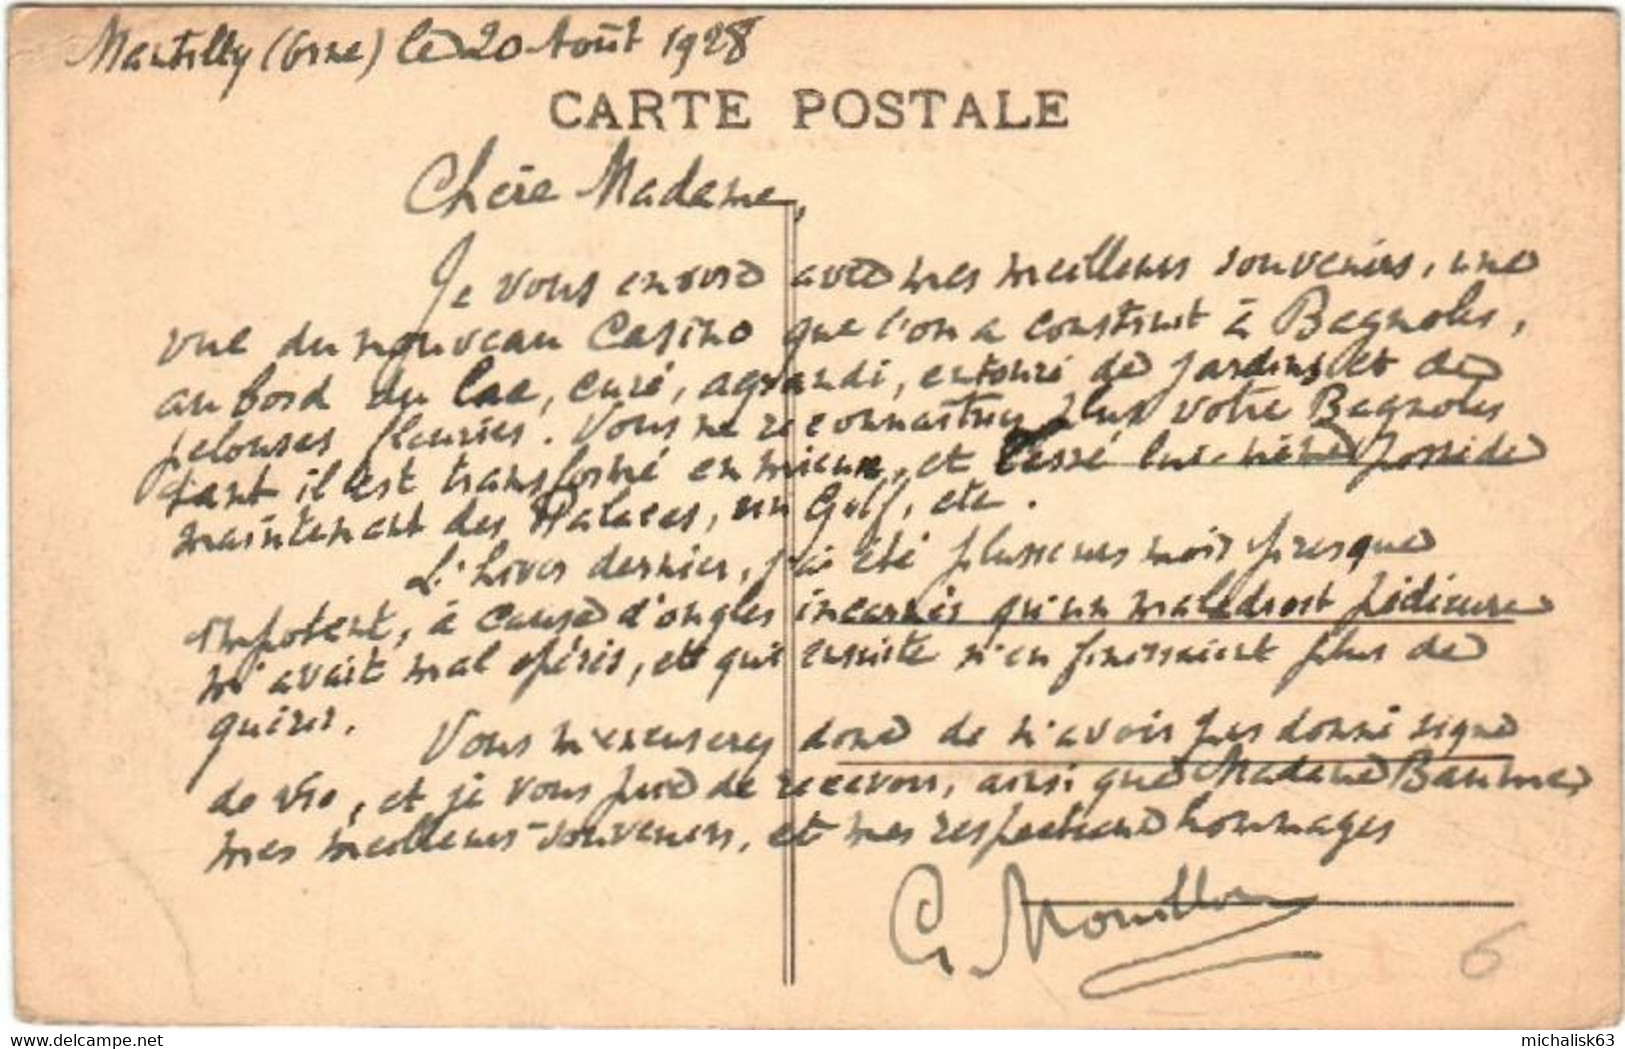 Mantilly (Orne) le 20 Août 1928
CARTE POSTALE
Chère Madame,
Je vous envoie avec mes meilleurs souvenirs, une
vue du nouveau Casino que l'on a construit à Bagnoles,
au bord du lac, curé, agrandi, entouré de jardins et de
pelouses fleuries. Vous ne reconnaitriez plus votre Bagnoles
tant il est transformé en mieux, et Tessé lui-même possède
maintenant des Palaces, un Golf, etc.
L'hiver dernier, j'ai été plusieurs mois presque
impotent, à cause d'ongles incarnés qu'un maladroit pédicure
m'avait mal opérés, et qui ensuite n'en finissaient plus de
guérir.
Vous m'excuserez donc de n'avoir pas donné signe
de vie, et je vous prie de recevoir, ainsi que Madame Baume,
mes meilleurs souvenirs, et mes respectueux hommages
G. Mouillon
6
delcampe.net
michalisk63